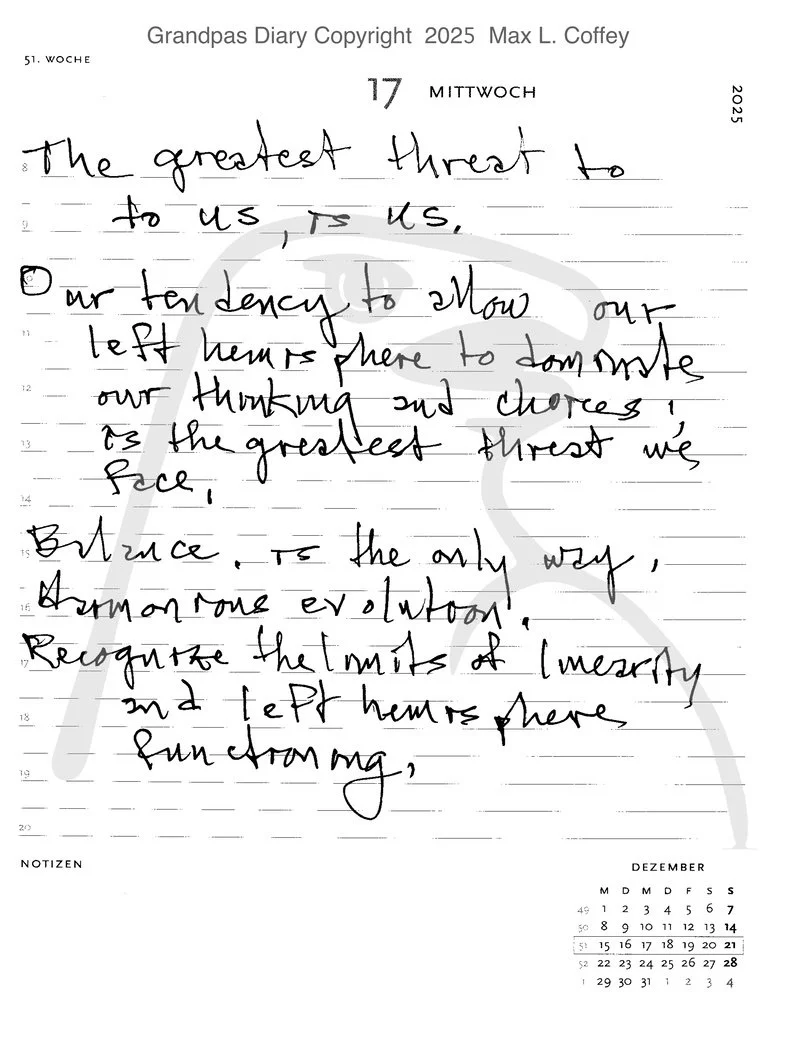 Grandpas Diary Copyright 2025 Max L. Coffey
51. WOCHE
17 MITTWOCH
2025
8 The greatest threat to
9 to us, is us.
10 Our tendency to allow our
11 left hemisphere to dominate
12 our thinking and choices,
13 is the greatest threat we
face.
14
15 Balance, is the only way,
16 Harmonious evolution.
17 Recognize the limits of linearity
18 and left hemisphere
functioning.
19
20
NOTIZEN
DEZEMBER
M D M D F S S
49 1 2 3 4 5 6 7
50 8 9 10 11 12 13 14
51 15 16 17 18 19 20 21
52 22 23 24 25 26 27 28
1 29 30 31 1 2 3 4